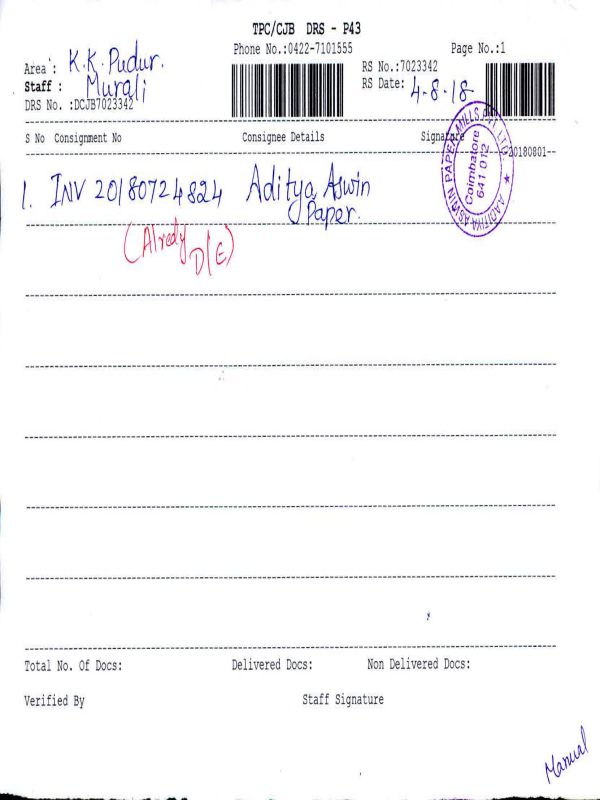 TPC/CJB DRS - P43
Phone No.:0422-7101555 Page No.:1
Area : K.K. Pudur. RS No.:7023342
Staff : Murali RS Date: 4-8-18
DRS No. :DCJB7023342
S No Consignment No Consignee Details Signature
20180801--
AADITYA ASWIN PAPER MILLS PVT LTD ★
Coimbatore
641 012
1. INV 20180724824 Aditya Aswin
Paper.
(Alredy
D/E)
Total No. Of Docs: Delivered Docs: Non Delivered Docs:
Verified By Staff Signature
Manual